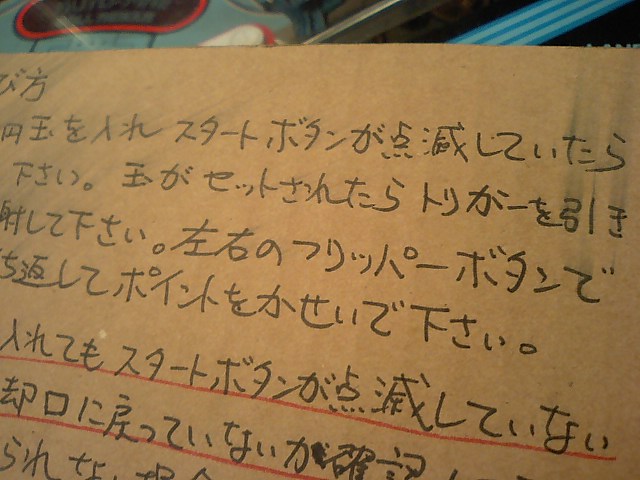 び方
円玉を入れ スタートボタンが点滅していたら
下さい。玉がセットされたらトリガーを引き
射して下さい。左右のフリッパーボタンで
ち返してポイントをかせいで下さい。
入れてもスタートボタンが点滅していない
却口に戻っていないか確認
られない場合